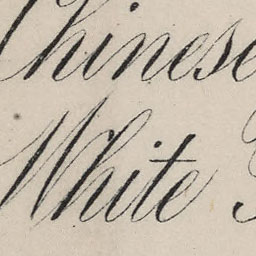 Chinese
White